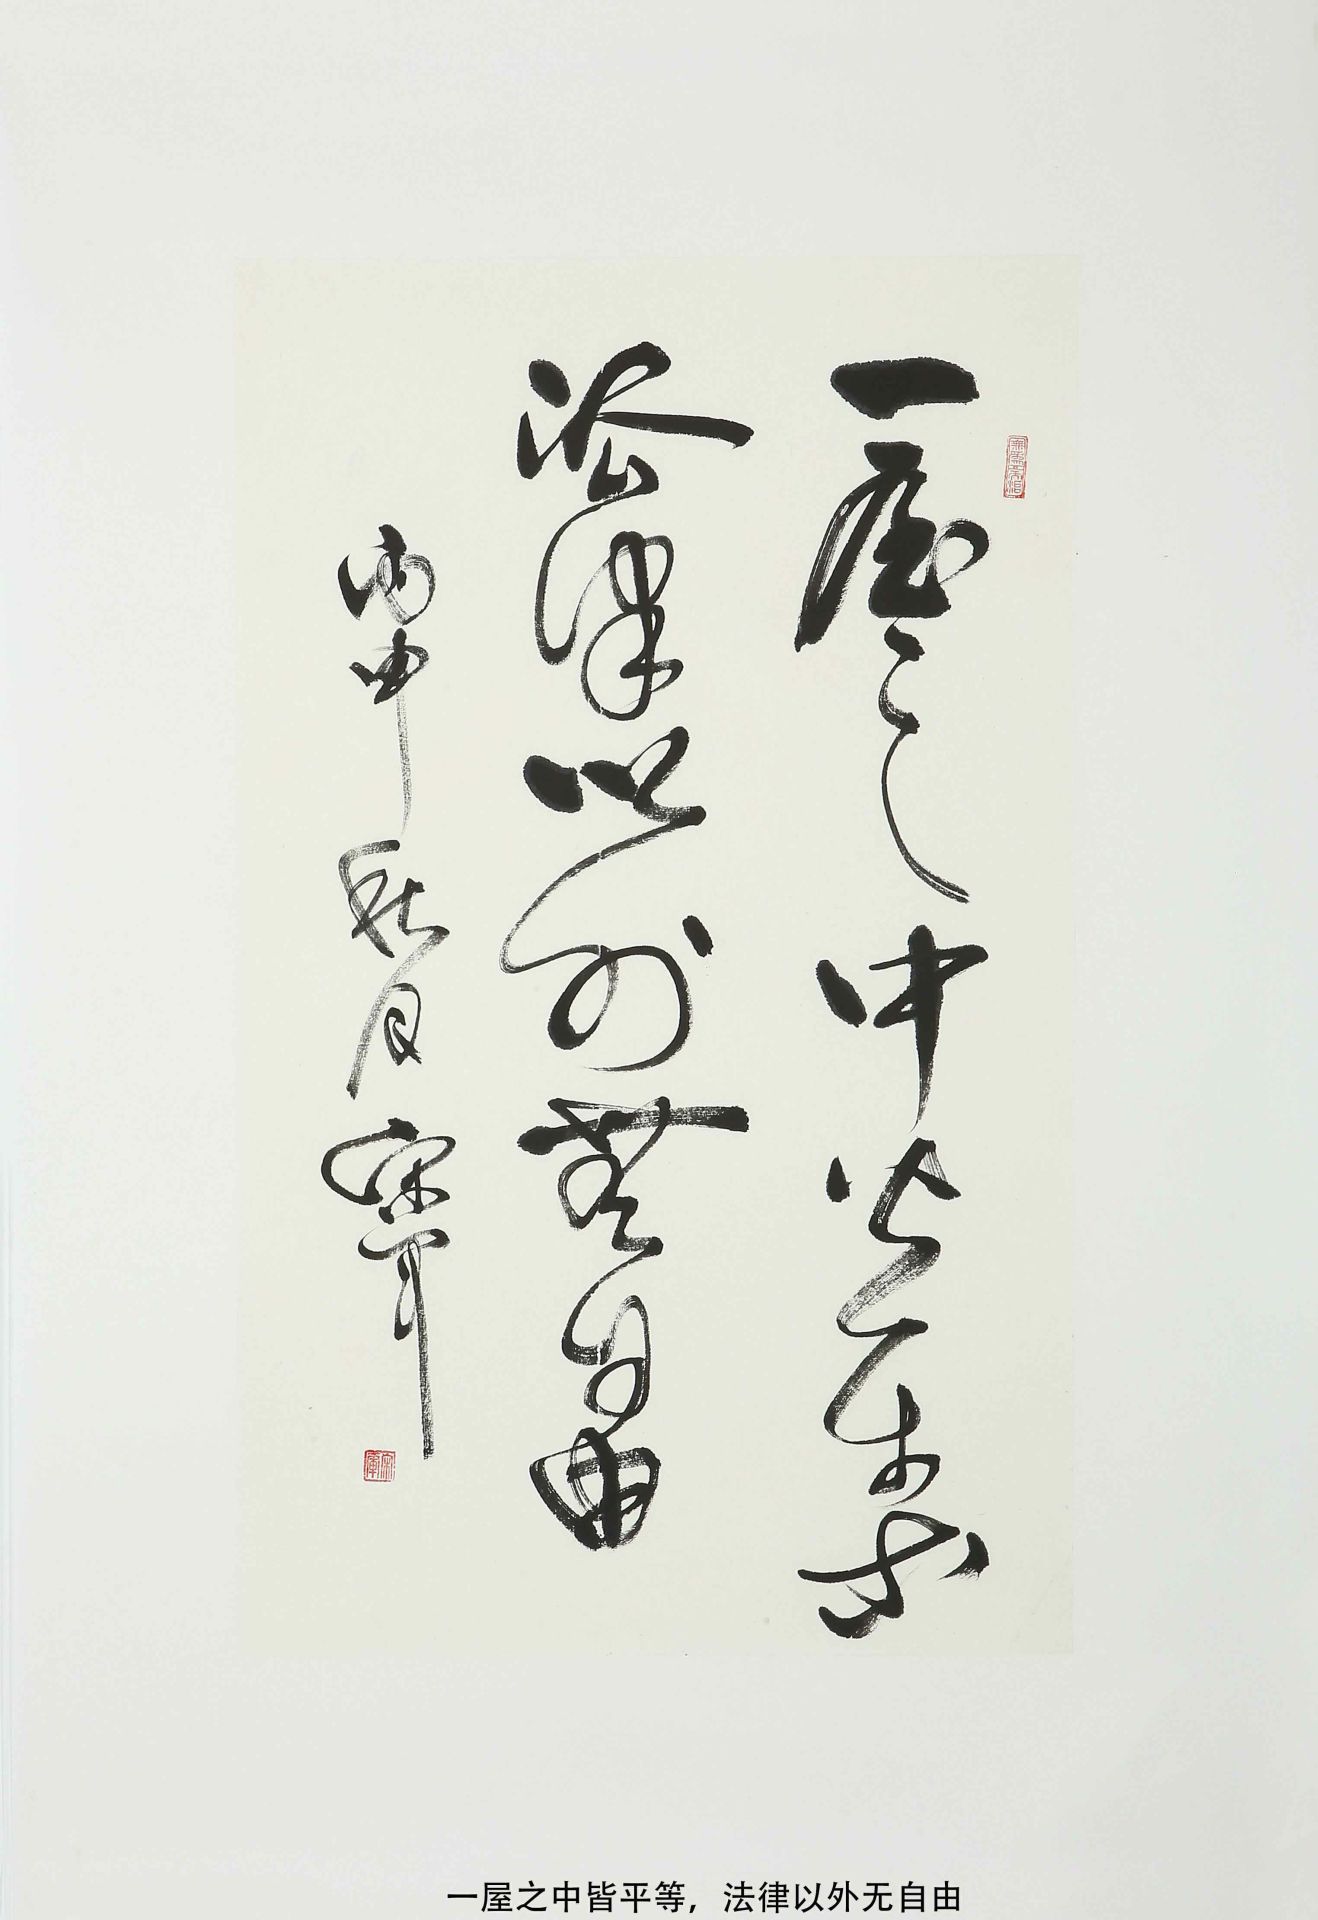 一屋之中皆平等
法律以外無自由
丙申秋月宋軍
一屋之中皆平等，法律以外无自由